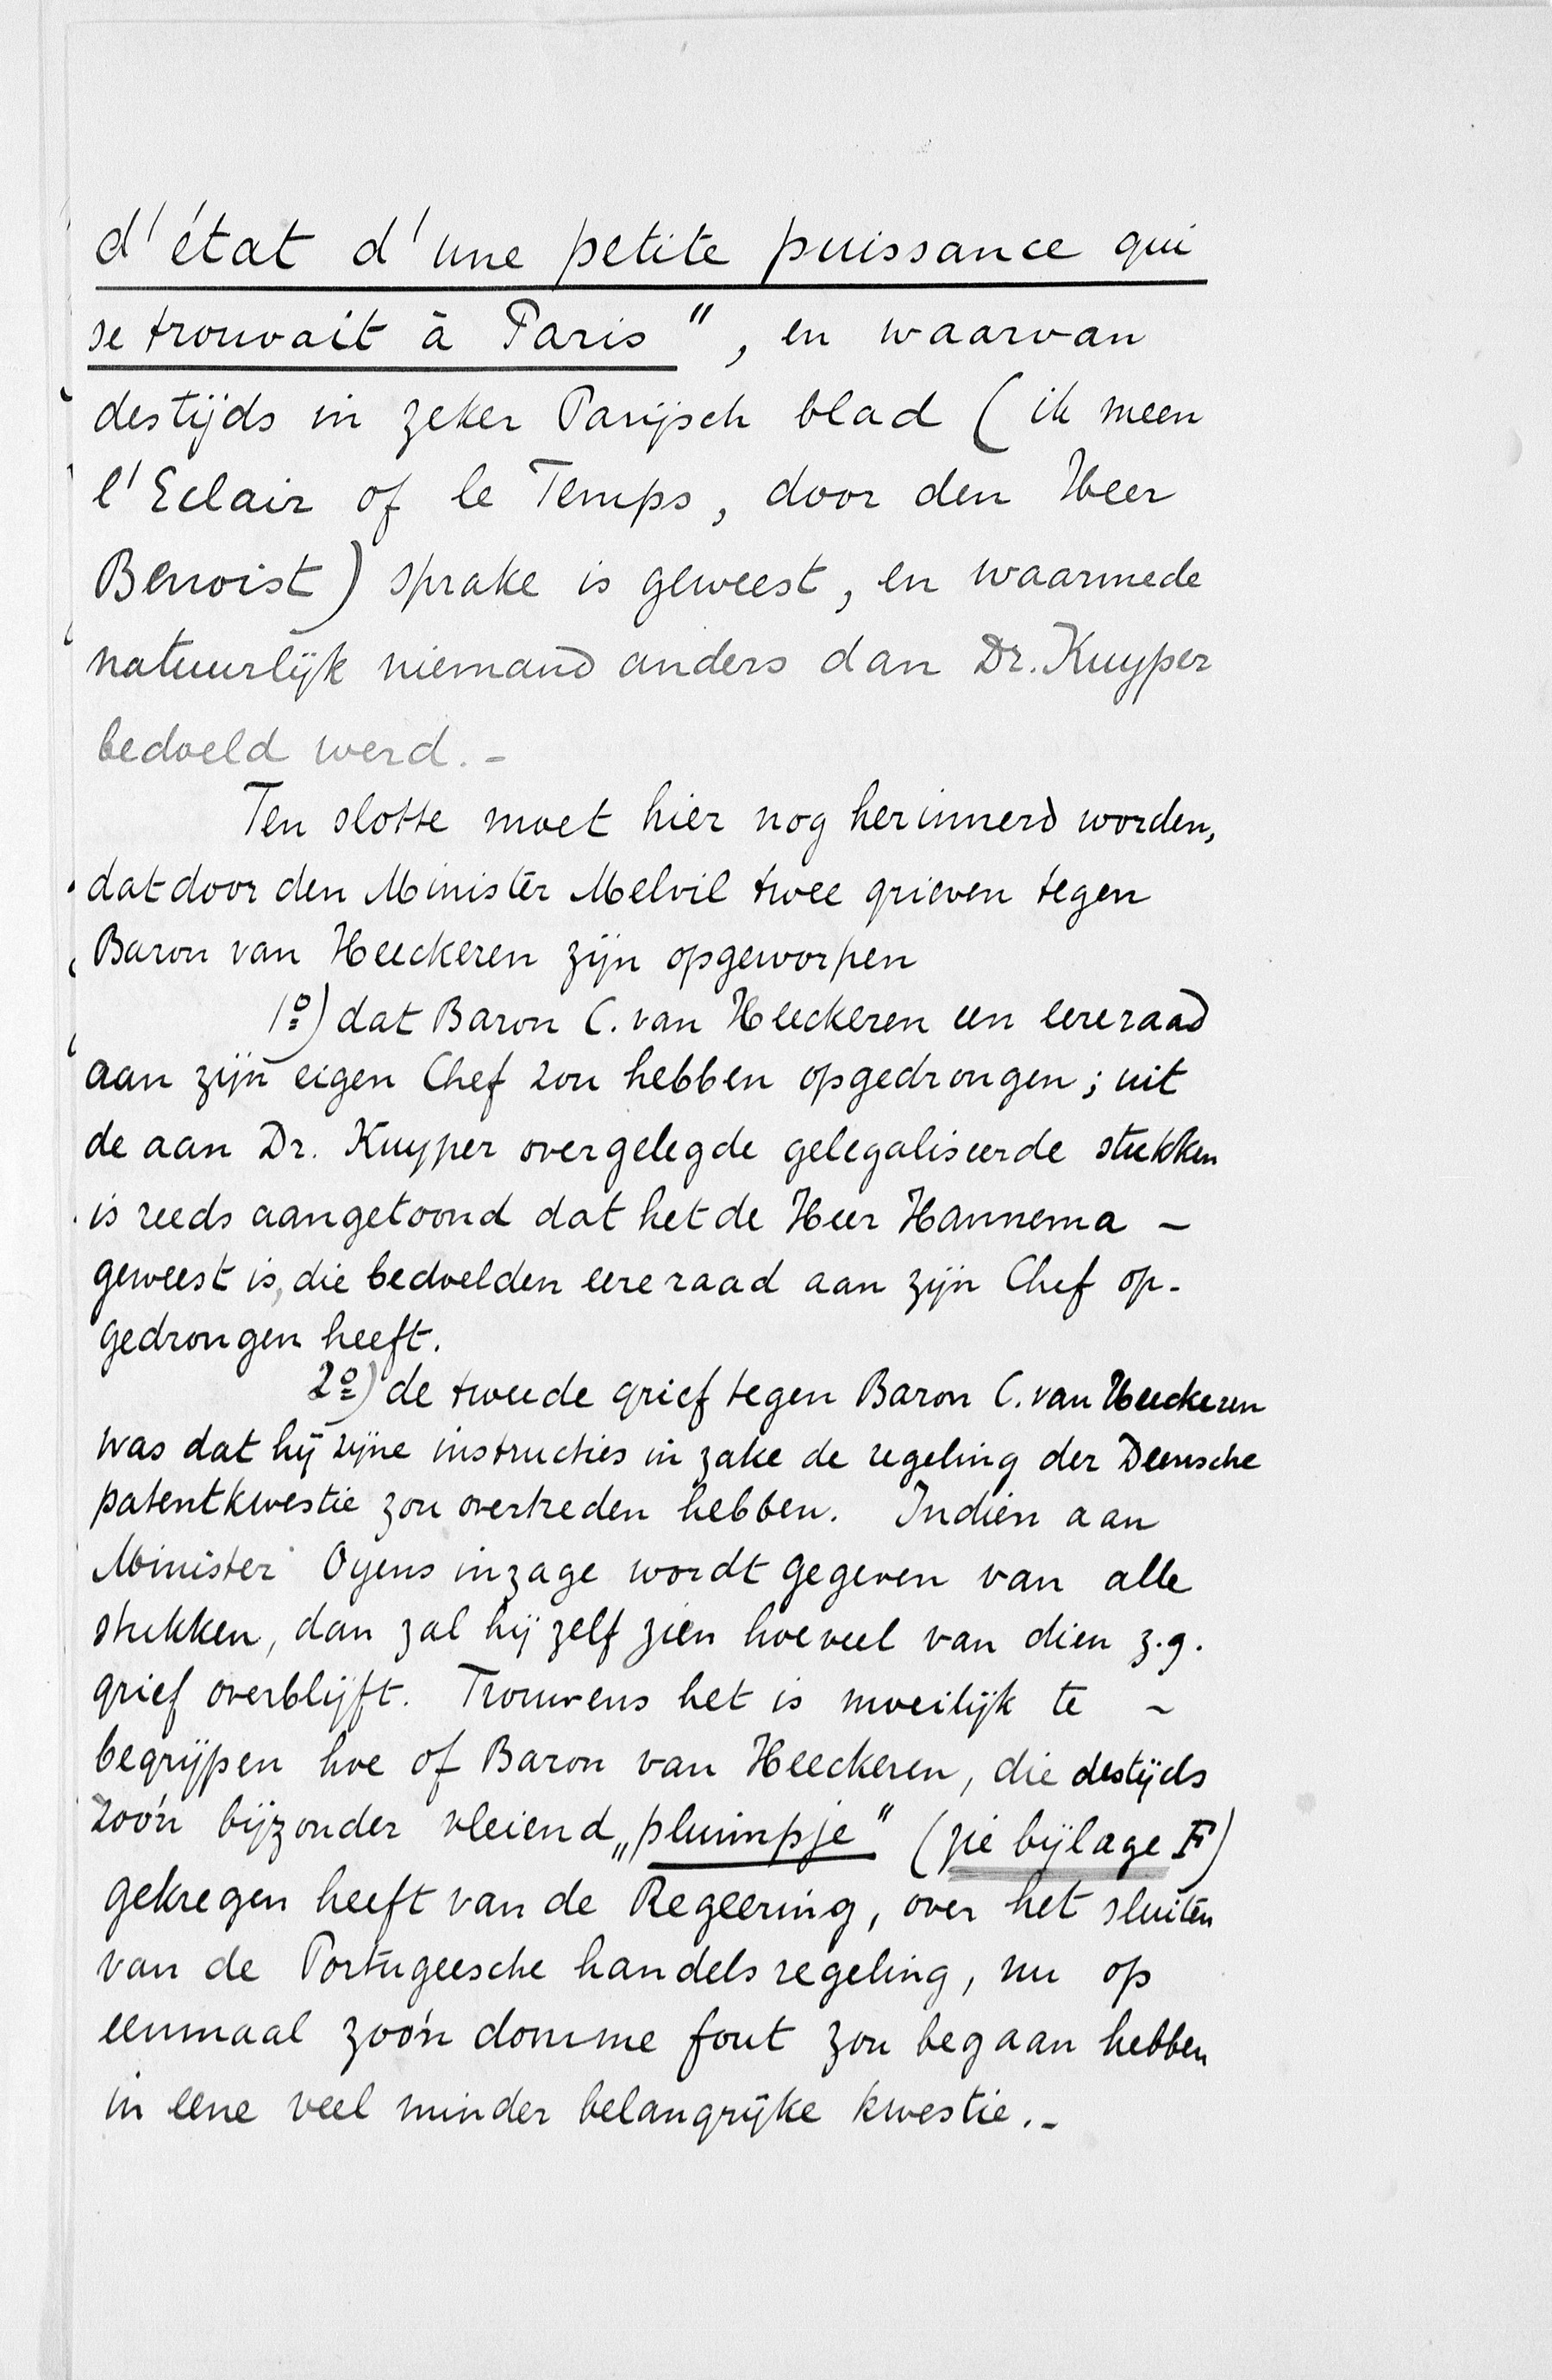 d'état d'une petite puissance qui
se trouvait à Paris", en waarvan
destijds in zeker Parijsch blad (ik meen
l'Eclair of le Temps, door den Heer
Benoist) sprake is geweest, en waarmede
natuurlijk niemand anders dan Dr. Kuyper
bedoeld werd. -
Ten slotte moet hier nog herinnerd worden,
dat door den Minister Melvil twee grieven tegen
Baron van Heeckeren zijn opgeworpen
1º) dat Baron C. van Heeckeren een eereraad
aan zijn eigen Chef zou hebben opgedrongen; uit
de aan Dr. Kuyper overgelegde gelegaliseerde stukken
is reeds aangetoond dat het de Heer Hannema -
geweest is, die bedoelden eereraad aan zijn Chef op-
gedrongen heeft.
2º) de tweede grief tegen Baron C. van Heeckeren
was dat hij zijne instructies in zake de regeling der Deensche
patentkwestie zou overtreden hebben. Indien aan
Minister Oyens inzage wordt gegeven van alle
stukken, dan zal hij zelf zien hoeveel van dien z.g.
grief overblijft. Trouwens het is moeilijk te -
begrijpen hoe of Baron van Heeckeren, die destijds
zoo'n bijzonder vleiend „pluimpje" (zie bijlage F)
gekregen heeft van de Regeering, over het sluiten
van de Portugeesche handelsregeling, nu op
eenmaal zoo'n domme fout zou begaan hebben
in eene veel minder belangrijke kwestie. -